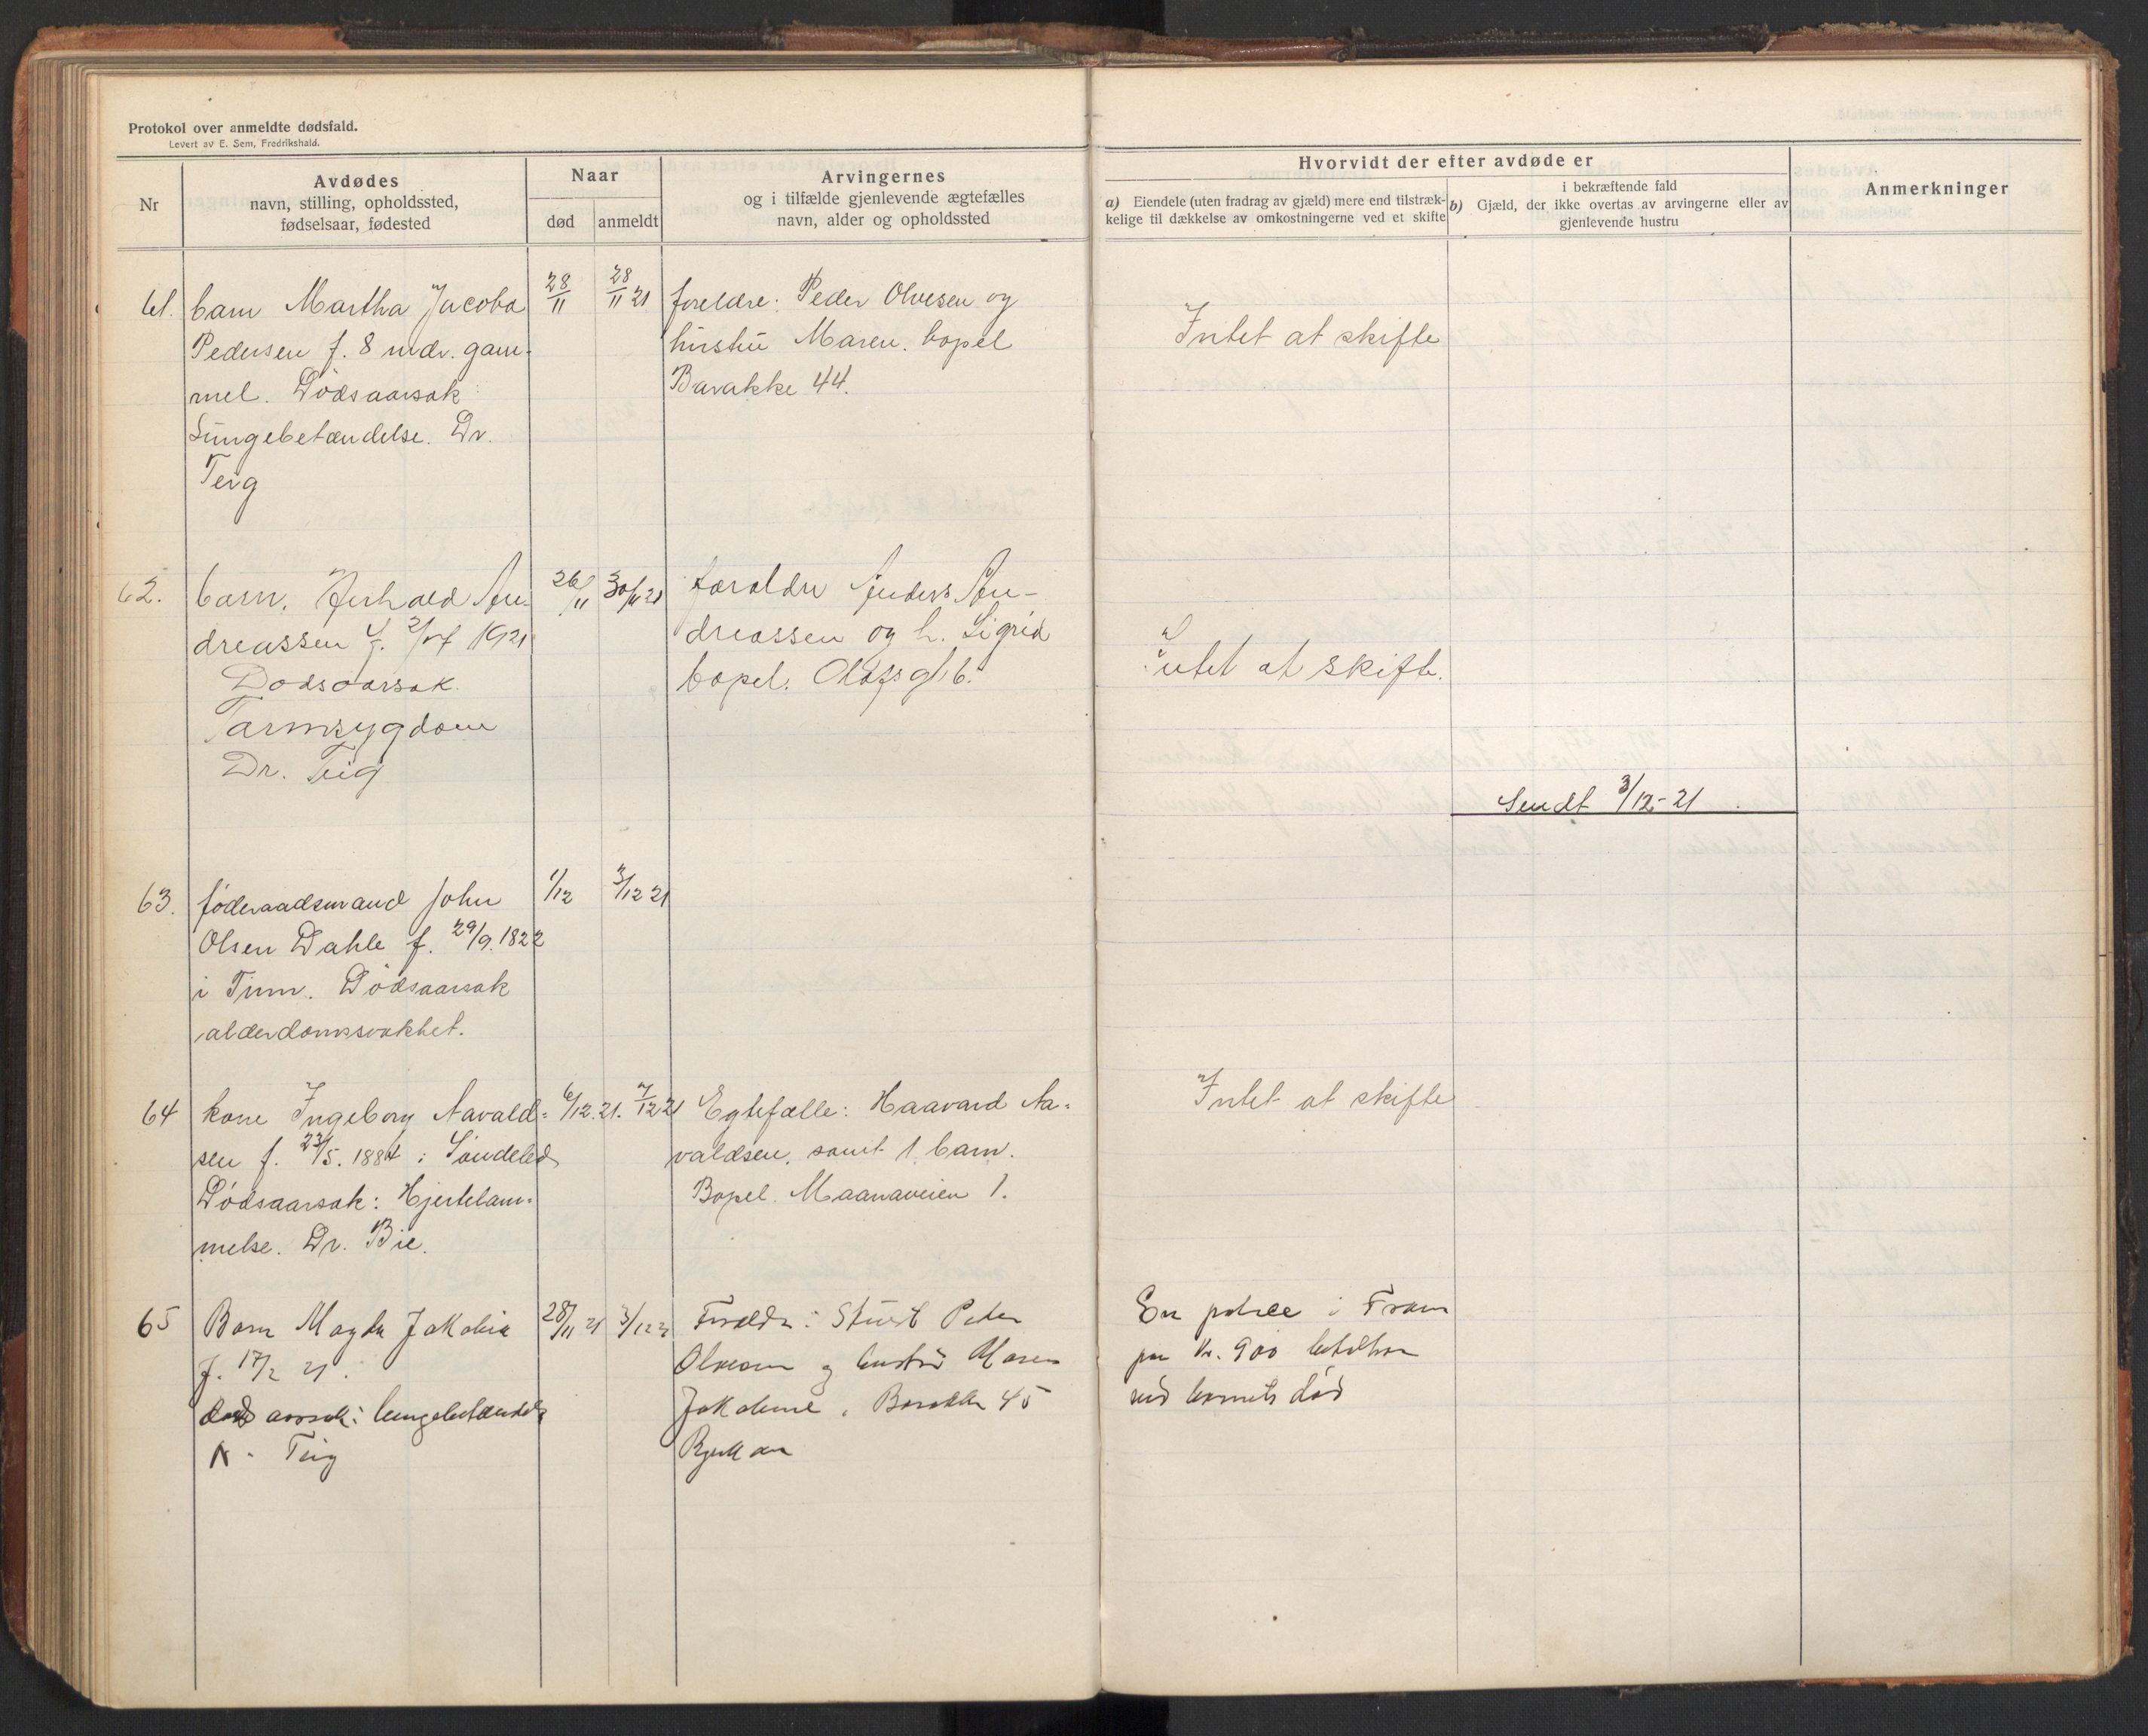 Protokol over anmeldte dødsfald.
Levert av E. Sem, Fredrikshald.
Nr
Avdødes
navn, stilling, opholdssted,
fødselsaar, fødested
Naar
død
anmeldt
Arvingernes
og i tilfælde gjenlevende ægtefælles
navn, alder og opholdssted
Hvorvidt der efter avdøde er
a) Eiendele (uten fradrag av gjæld) mere end tilstræk-
kelige til dækkelse av omkostningerne ved et skifte
i bekræftende fald
b) Gjæld, der ikke overtas av arvingerne eller av
gjenlevende hustru
Anmerkninger
61.
barn Martha Jacoba
Pedersen f. 8 mdr. gam-
mel. Dødsaarsak
Lungebetændelse. Dr.
Teig
28/11
28/11 21
foreldre: Peder Olvesen og
hustru Maren. bopel
Barakke 44.
Intet at skifte
62.
barn, An-
dreassen f. 1921
Dødsaarsak.
Tarmsygdom
Dr. Teig
26/11
30/11 21
foraldre Anders An-
dreassen og h. Sigrid
bopel. Olafsgt. 6.
Intet at skifte.
Sendt 3/12-21
63.
føderaadsmand John
Olsen Dahle f. 29/9.1822
i Tinn. Dødsaarsak
alderdomssvakhet.
1/12
3/12 21
64
kone Ingeborg Navald-
sen f. 23/5. 1884 i Søndeled
Dødsaarsak: Hjertelam-
melse. Dr. Bie.
6/12.21.
7/12 21
Egtefælle: Haavard Na-
valdsen, samt 1 barn.
Bopel. Maanaveien 1.
Intet at skifte
65
Barn Magda Jakobie
f. 17/2 21.
døds aarsak: lungebetændelse
Teig
28/11 21
3/12 21
Foreldre: Peder
Olvesen og hustru Maren
Jakobine, Barakke 45
Rjukan
En police i Fram
paa kr. 900 betalbar
ved barnets død